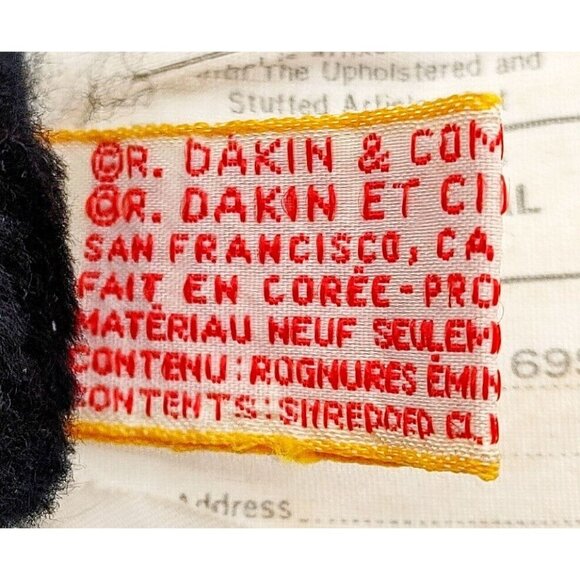 The Upholstered and
Stuffed
©R. DAKIN & COM
©R. DAKIN ET CI
SAN FRANCISCO, CA
FAIT EN CORÉE-PRO
MATÉRIAU NEUF SEULEM
CONTENU: ROGNURES ÉMIN
CONTENTS: SHREDDED CL
69
Address